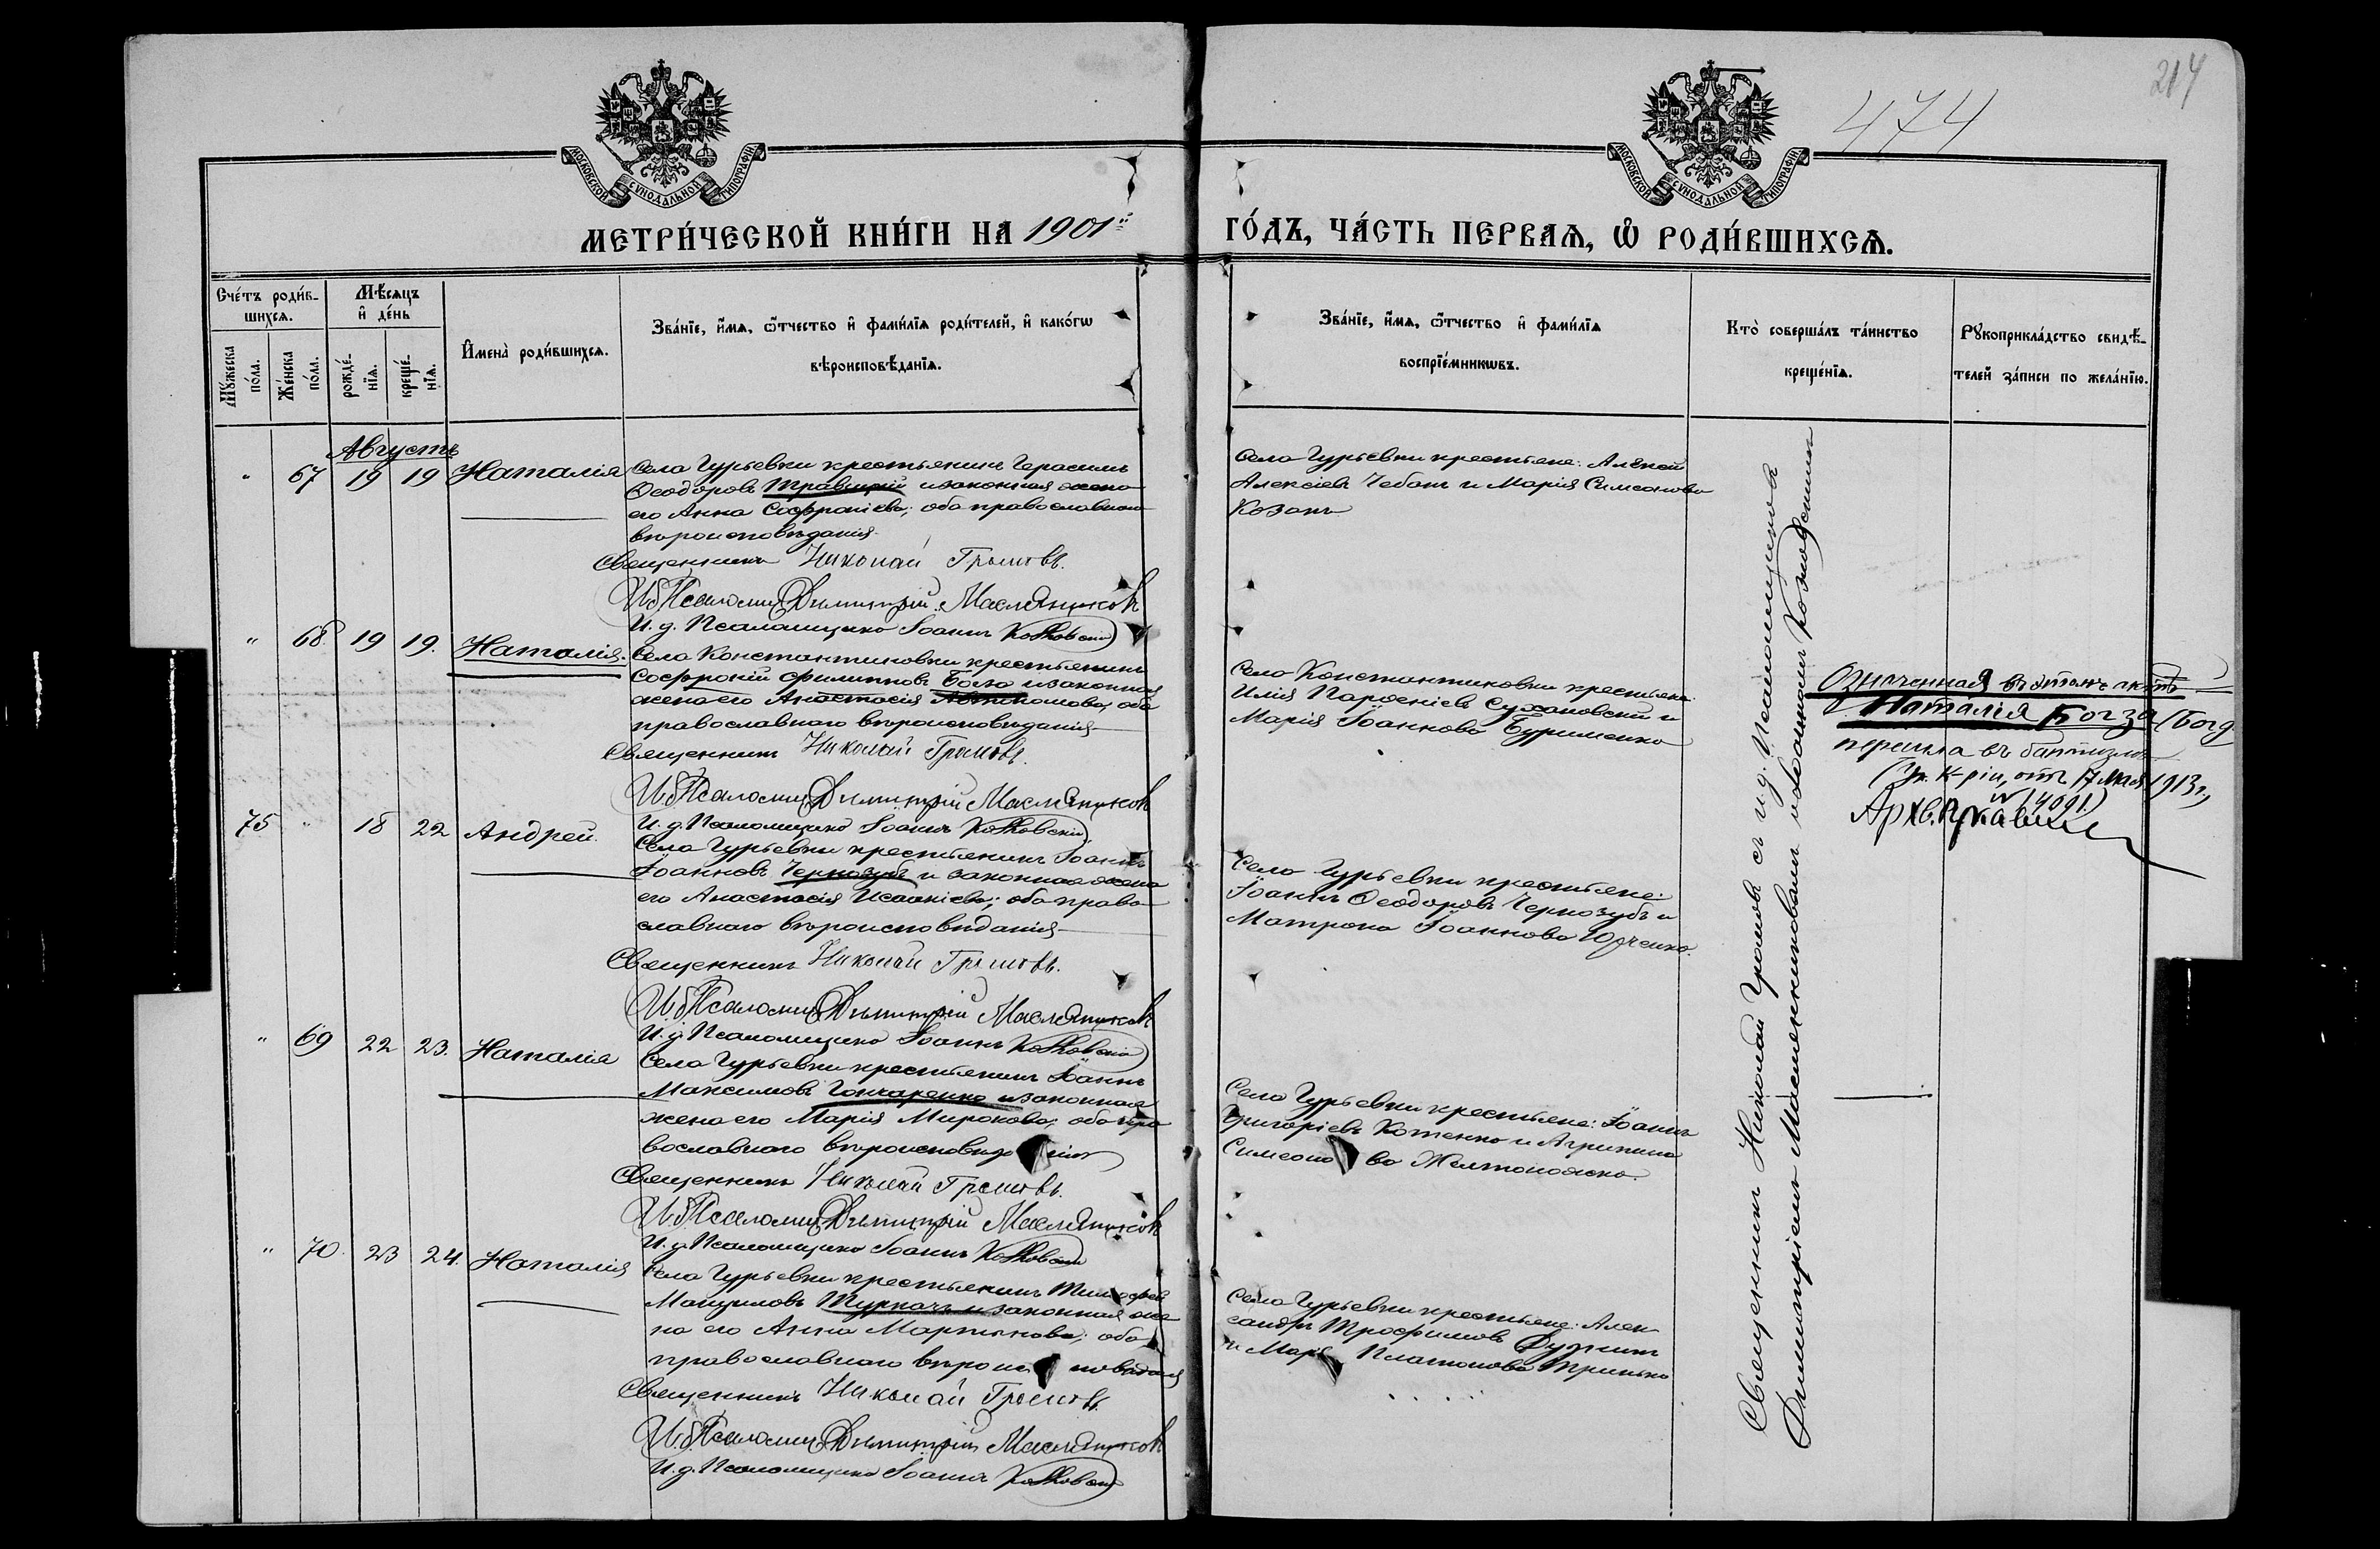 214
474
МОСКОВСКОЙ СУНОДАЛЬНОЙ ТИПОГРАФІИ
МОСКОВСКОЙ СУНОДАЛЬНОЙ ТИПОГРАФІИ
МЕТРИ́ЧЕСКОЙ КНИ́ГИ НА 1901й ГО́ДЪ, ЧА́СТЬ ПЕРВАѦ, Ѡ҆ РОДИ́ВШИХСѦ.
Сче́тъ роди́в-
шихсѧ.
Мѣ́сѧцъ
и҆ де́нь
Мꙋ́жеска по́ла.
Же́нска по́ла.
рожде́-нїѧ.
креще́-нїѧ.
И҆мена̀ роди́вшихсѧ.
Зва́нїе, и҆́мѧ, ѻ҆́тчество и҆ фами́лїѧ роди́телей, и҆ како́гѡ
вѣроисповѣ́данїѧ.
Зва́нїе, и҆́мѧ, ѻ҆́тчество и҆ фами́лїѧ
воспрїе́мникѡвъ.
Кто̀ соверша́лъ та́инство
креще́нїѧ.
Рꙋкоприкла́дство свидѣ́-
телей за́писи по жела́нїю.
Августъ
" 67 19 19 Наталія
Села Гурьевки крестьянинъ Герасимъ
Ѳеодоровъ и законная жена
его Анна Софроніева; оба православнаго
вѣроисповѣданія
Священникъ Николай Громовъ.
И. д. Псаломщ. Димитрій Масляниковъ
И. д. Псаломщика Іоаннъ
Села Гурьевки крестьяне: Алексій
Алексіевъ Чебанъ и Марія Симеонова
Козакъ
" 68. 19 19. Наталія.
Села Константиновки крестьянинъ
Софроній Филипповъ и законная
жена его Анастасія Автономова, оба
православнаго вѣроисповѣданія
Священникъ Николай Громовъ.
И. д. Псаломщ. Димитрій Масляниковъ
И. д. Псаломщика Іоаннъ
Села Константиновки крестьяне
Илія Парѳеніевъ Сухановскій и
Марія Іоаннова Бурименко
Означенная въ этомъ актѣ
Наталія Богза (Богд
перешла въ баптизмъ
(Ук. К-ріи, отъ 17 мая 1913 г.,
№ 14091)
Арх.
75 " 18 22 Андрей.
Села Гурьевки крестьянинъ Іоаннъ
Іоанновъ Чернозубъ и законная жена
его Анастасія Исаакіева; оба право
славнаго вѣроисповѣданія
Священникъ Николай Громовъ.
И. д. Псаломщ. Димитрій Масляниковъ
И. д. Псаломщика Іоаннъ
Села Гурьевки крестьяне:
Іоаннъ Ѳеодоровъ Чернозубъ и
Матрона Іоаннова Юрченко.
" 69 22 23. Наталія
Села Гурьевки крестьянинъ Іоаннъ
Максимовъ Гончаренко и законная
жена его Марія Миронова; оба пра
вославнаго вѣроисповѣданія
Священникъ Николай Громовъ.
И. д. Псаломщ. Димитрій Масляниковъ
И. д. Псаломщика Іоаннъ
Села Гурьевки крестьяне: Іоаннъ
Григоріевъ Котенко и Агрипина
Симеонова
" 70. 23 24. Наталія
Села Гурьевки крестьянинъ Тимофей
и законная же
на его Анна Мартинова; оба
православнаго вѣроисповѣданія
Священникъ Николай Громовъ.
И. д. Псаломщ. Димитрій Масляниковъ
И. д. Псаломщика Іоаннъ
Села Гурьевки крестьяне: Алек
сандръ Трофимовъ
и Марія Платонова
Священникъ Николай Громовъ съ и. д. Псаломщиковъ
Димитріемъ Маслениковымъ и Іоанномъ